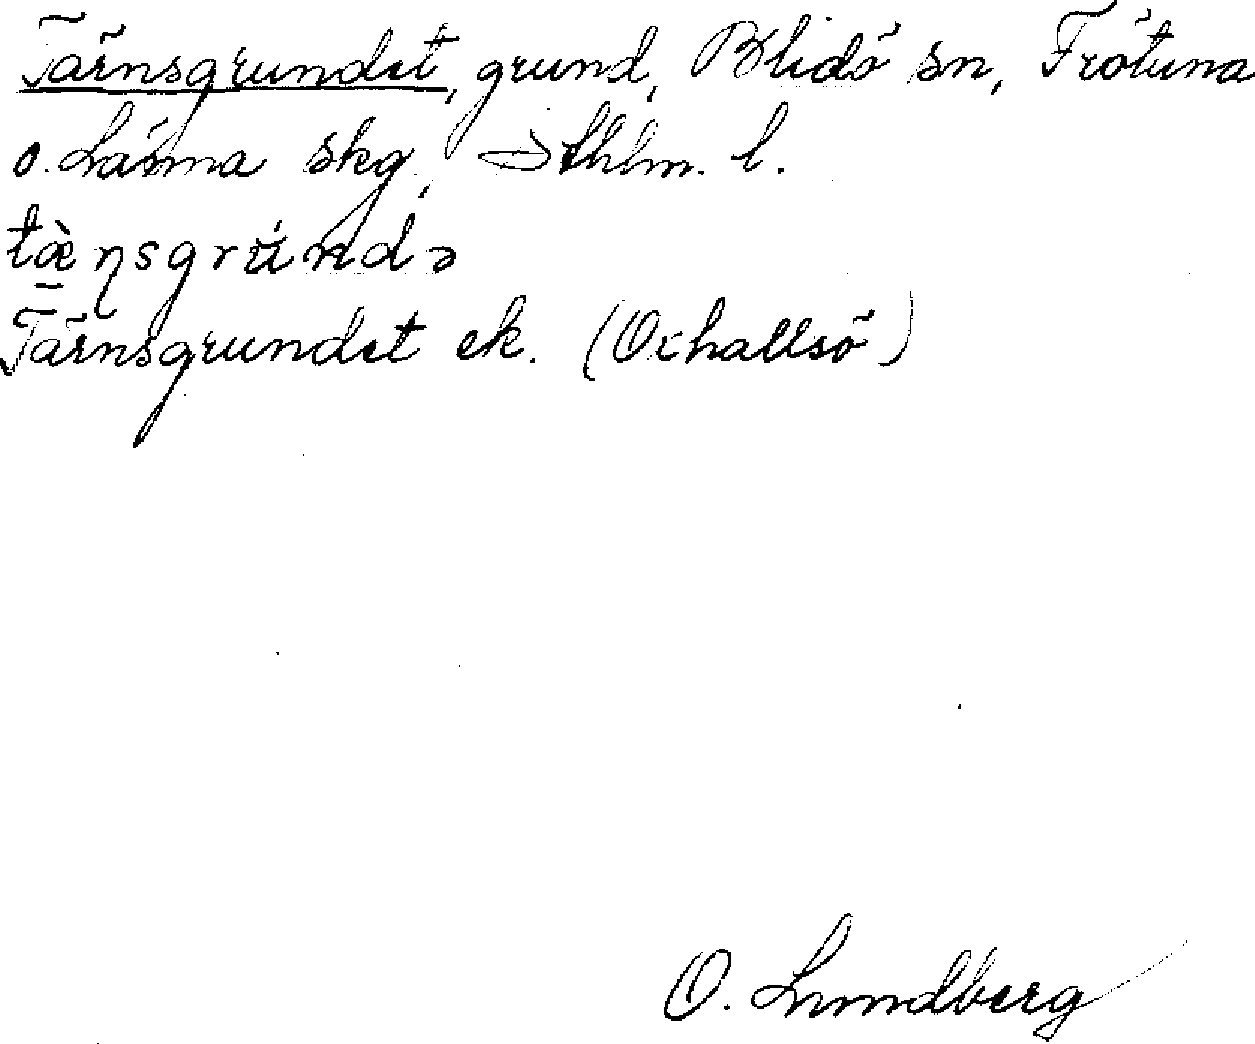 Tärnsgrundet, grund, Blidö sn, Frötuna
o. Länna skg, Sthlm. l.
tæ̀ṇsgrúndə
Tärnsgrundet ek. (Oxhallsö)
O. Lundberg